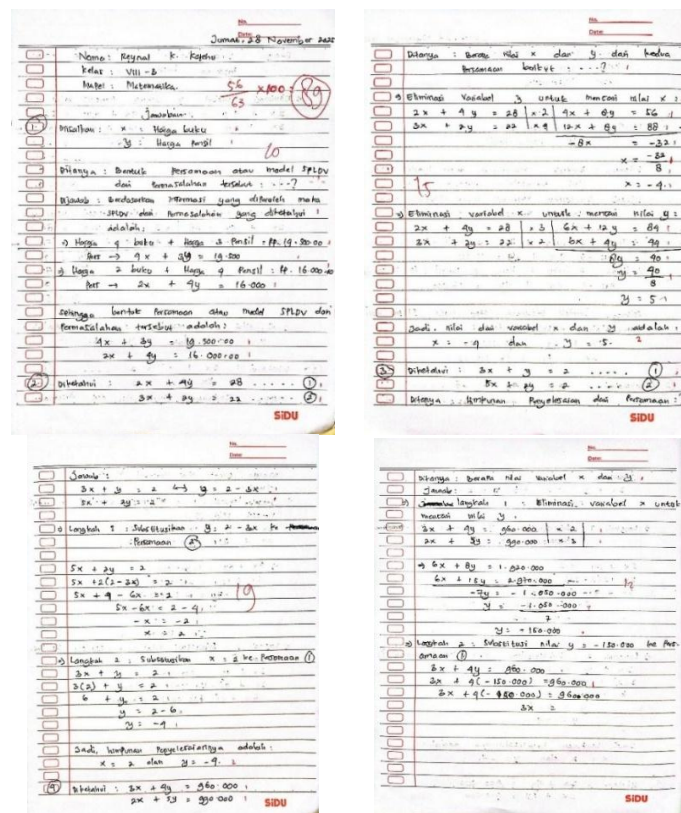 No.
Date:
Jumat, 28 November 2025
Nama : Reynal K.
Kelas : VIII - B
Mapel : Matematika.
56/63 x100 = 89
Jawaban :
1. Misalkan : x : Harga buku
y : Harga Pensil
10
Ditanya : Bentuk Persamaan atau model SPLDV
dari Permasalahan tersebut : ...?
Dijawab : Berdasarkan informasi yang diperoleh maka
SPLDV dari Permasalahan yang diketahui
adalah :
=> Harga 4 buku + Harga 3 Pensil : Rp. 19.500.00
→ 4x + 3y = 19.500
=> Harga 2 buku + Harga 4 Pensil : Rp. 16.000.00
→ 2x + 4y = 16.000
Sehingga bentuk Persamaan atau model SPLDV dari
Permasalahan tersebut adalah :
4x + 3y = 19.500.00
2x + 4y = 16.000.00
2. Diketahui : 2x + 4y = 28 ..... 1
3x + 2y = 22 ..... 2
SiDU
No.
Date:
Ditanya : Berapa nilai x dan y dari kedua
Persamaan berikut : ...?
=> Eliminasi Variabel y untuk mencari nilai x :
2x + 4y = 28 | x 2 | 4x + 8y = 56
3x + 2y = 22 | x 4 | 12x + 8y = 88
-8x = -32
x = -32/8
x = -4
15
=> Eliminasi variabel x untuk mencari nilai y :
2x + 4y = 28 | x 3 | 6x + 12y = 84
3x + 2y = 22 | x 2 | 6x + 4y = 44
8y = 40
y = 40/8
y = 5
Jadi, nilai dari variabel x dan y adalah :
x = -4 dan y = 5.
3. Diketahui : 3x + y = 2 ..... 1
5x + 2y = 2 ..... 2
Ditanya : Himpunan Penyelesaian dari Persamaan :
SiDU
No.
Date:
Jawab :
3x + y = 2 y = 2 - 3x
5x + 2y = 2
=> Langkah 1 : Substitusikan y = 2 - 3x ke
Persamaan 2
5x + 2y = 2
5x + 2(2-3x) = 2
5x + 4 - 6x = 2
19
5x - 6x = 2 - 4
-x = -2
x = 2
=> Langkah 2 : Substitusikan x = 2 ke Persamaan 1
3x + y = 2
3(2) + y = 2
6 + y = 2
y = 2 - 6
y = -4
Jadi, himpunan Penyelesaiannya adalah :
x = 2 dan y = -4.
4. Diketahui : 3x + 4y = 960.000
2x + 5y = 990.000
SiDU
No.
Date:
Ditanya : Berapa nilai variabel x dan y
Jawab :
langkah 1 : Eliminasi variabel x untuk
mencari nilai y
3x + 4y = 960.000 | x 2
2x + 5y = 990.000 | x 3
=> 6x + 8y = 1.920.000
6x + 15y = 2.970.000
-7y = -1.050.000
y = -1.050.000
7
y = -150.000
12
=> Langkah 2 : Substitusi nilai y = -150.000 ke Per-
samaan 1
3x + 4y = 960.000
3x + 4(-150.000) = 960.000
3x + 4(-150.000) = 960.000
3x =
SiDU